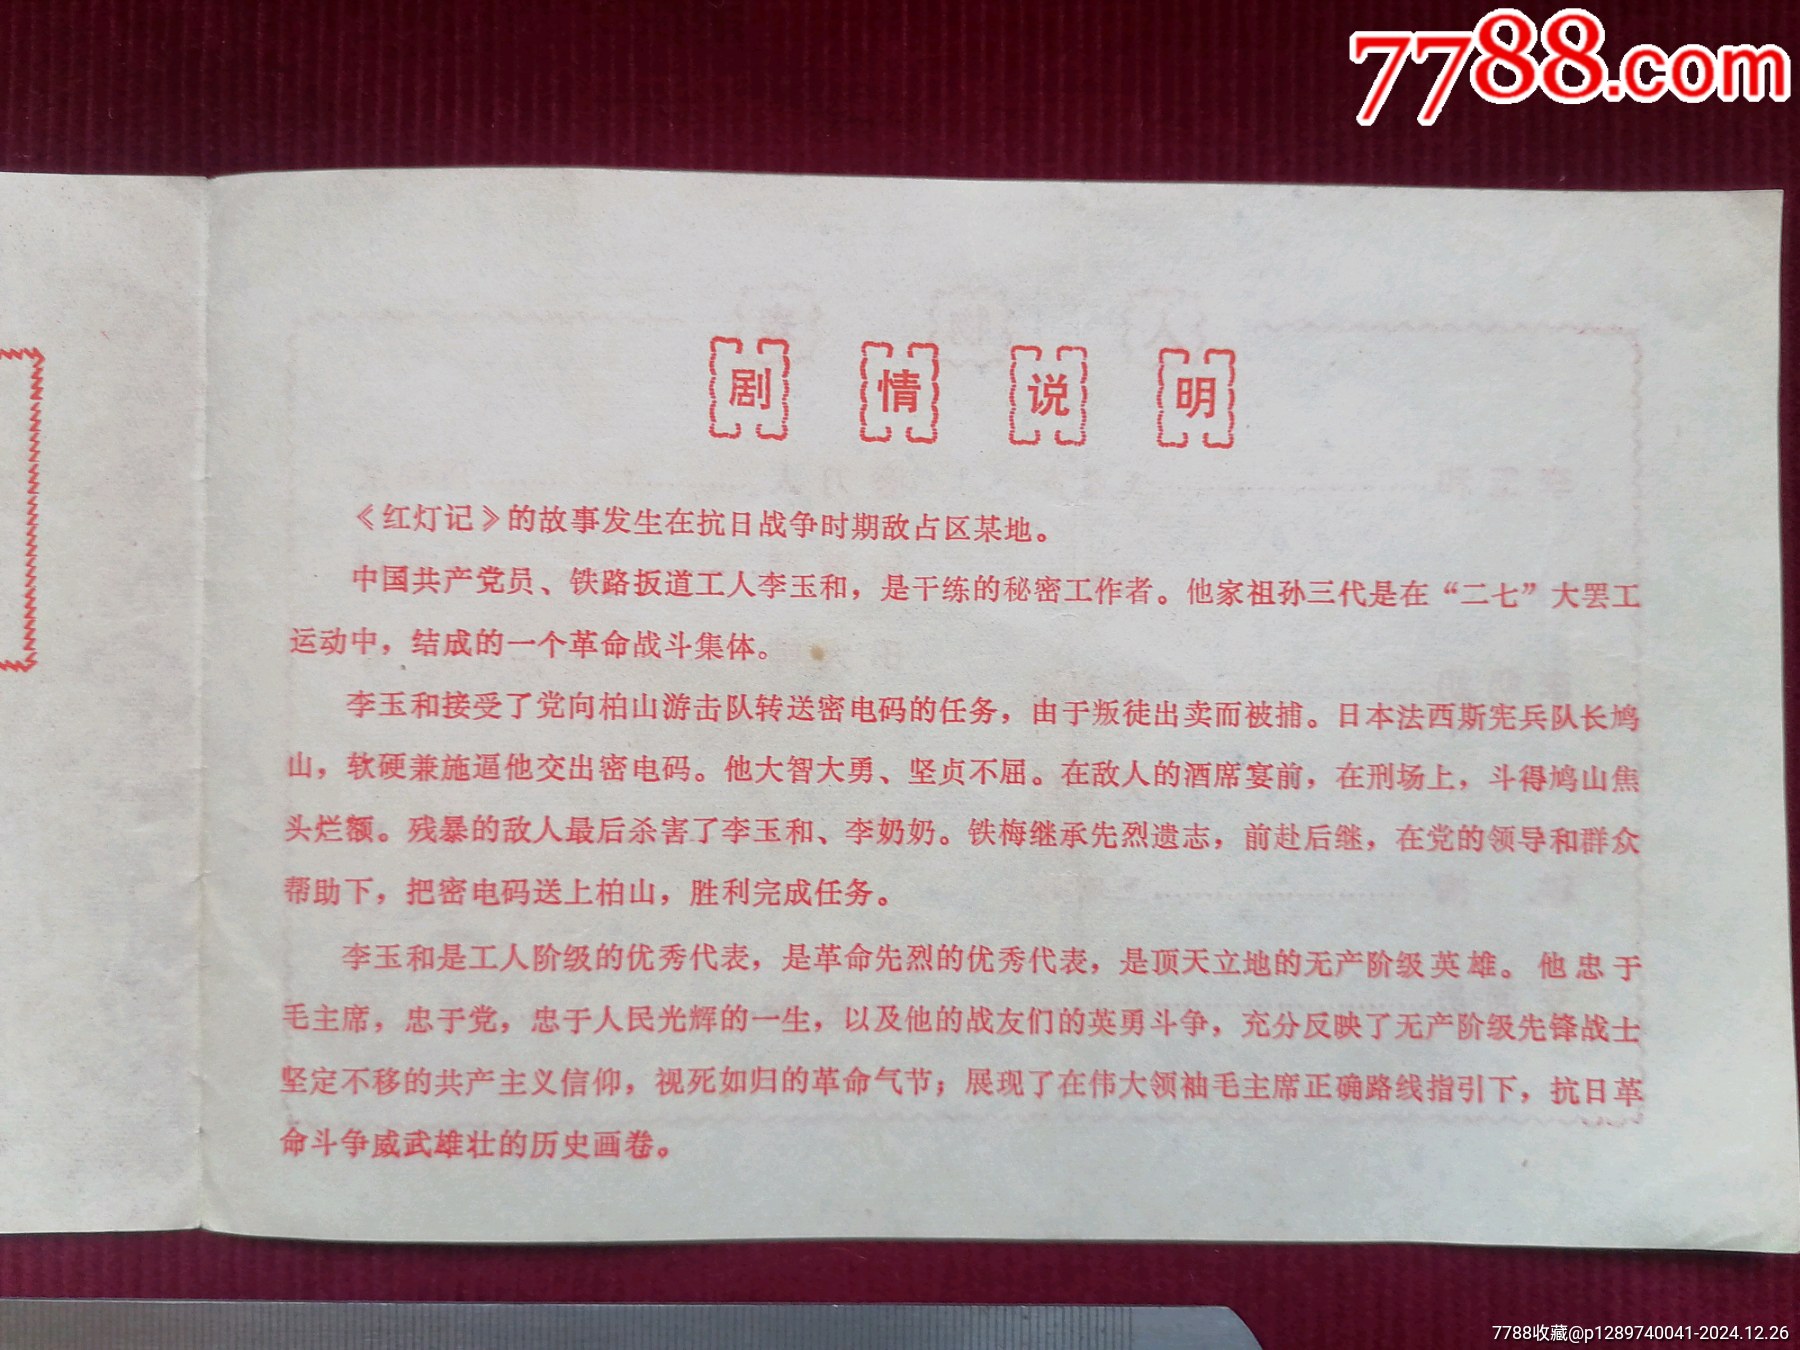 7788.com
剧情说明
《红灯记》的故事发生在抗日战争时期敌占区某地。
中国共产党员、铁路扳道工人李玉和，是干练的秘密工作者。他家祖孙三代是在“二七”大罢工
运动中，结成的一个革命战斗集体。
李玉和接受了党向柏山游击队转送密电码的任务，由于叛徒出卖而被捕。日本法西斯宪兵队长鸠
山，软硬兼施逼他交出密电码。他大智大勇、坚贞不屈。在敌人的酒席宴前，在刑场上，斗得鸠山焦
头烂额。残暴的敌人最后杀害了李玉和、李奶奶。铁梅继承先烈遗志，前赴后继，在党的领导和群众
帮助下，把密电码送上柏山，胜利完成任务。
李玉和是工人阶级的优秀代表，是革命先烈的优秀代表，是顶天立地的无产阶级英雄。他忠于
毛主席，忠于党，忠于人民光辉的一生，以及他的战友们的英勇斗争，充分反映了无产阶级先锋战士
坚定不移的共产主义信仰，视死如归的革命气节；展现了在伟大领袖毛主席正确路线指引下，抗日革
命斗争威武雄壮的历史画卷。
7788收藏@p1289740041-2024.12.26